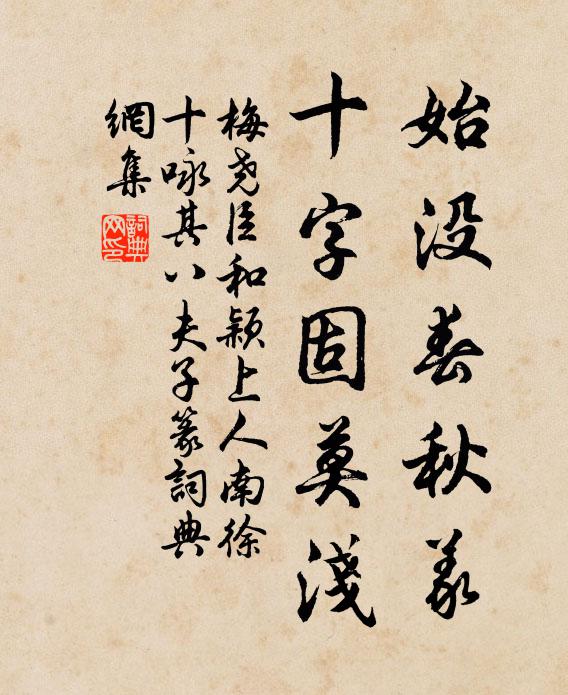 始没春秋義
十字固莫淺
梅尧臣和颖上人南徐
十咏其八夫子篆詞典
網集
詞典網印